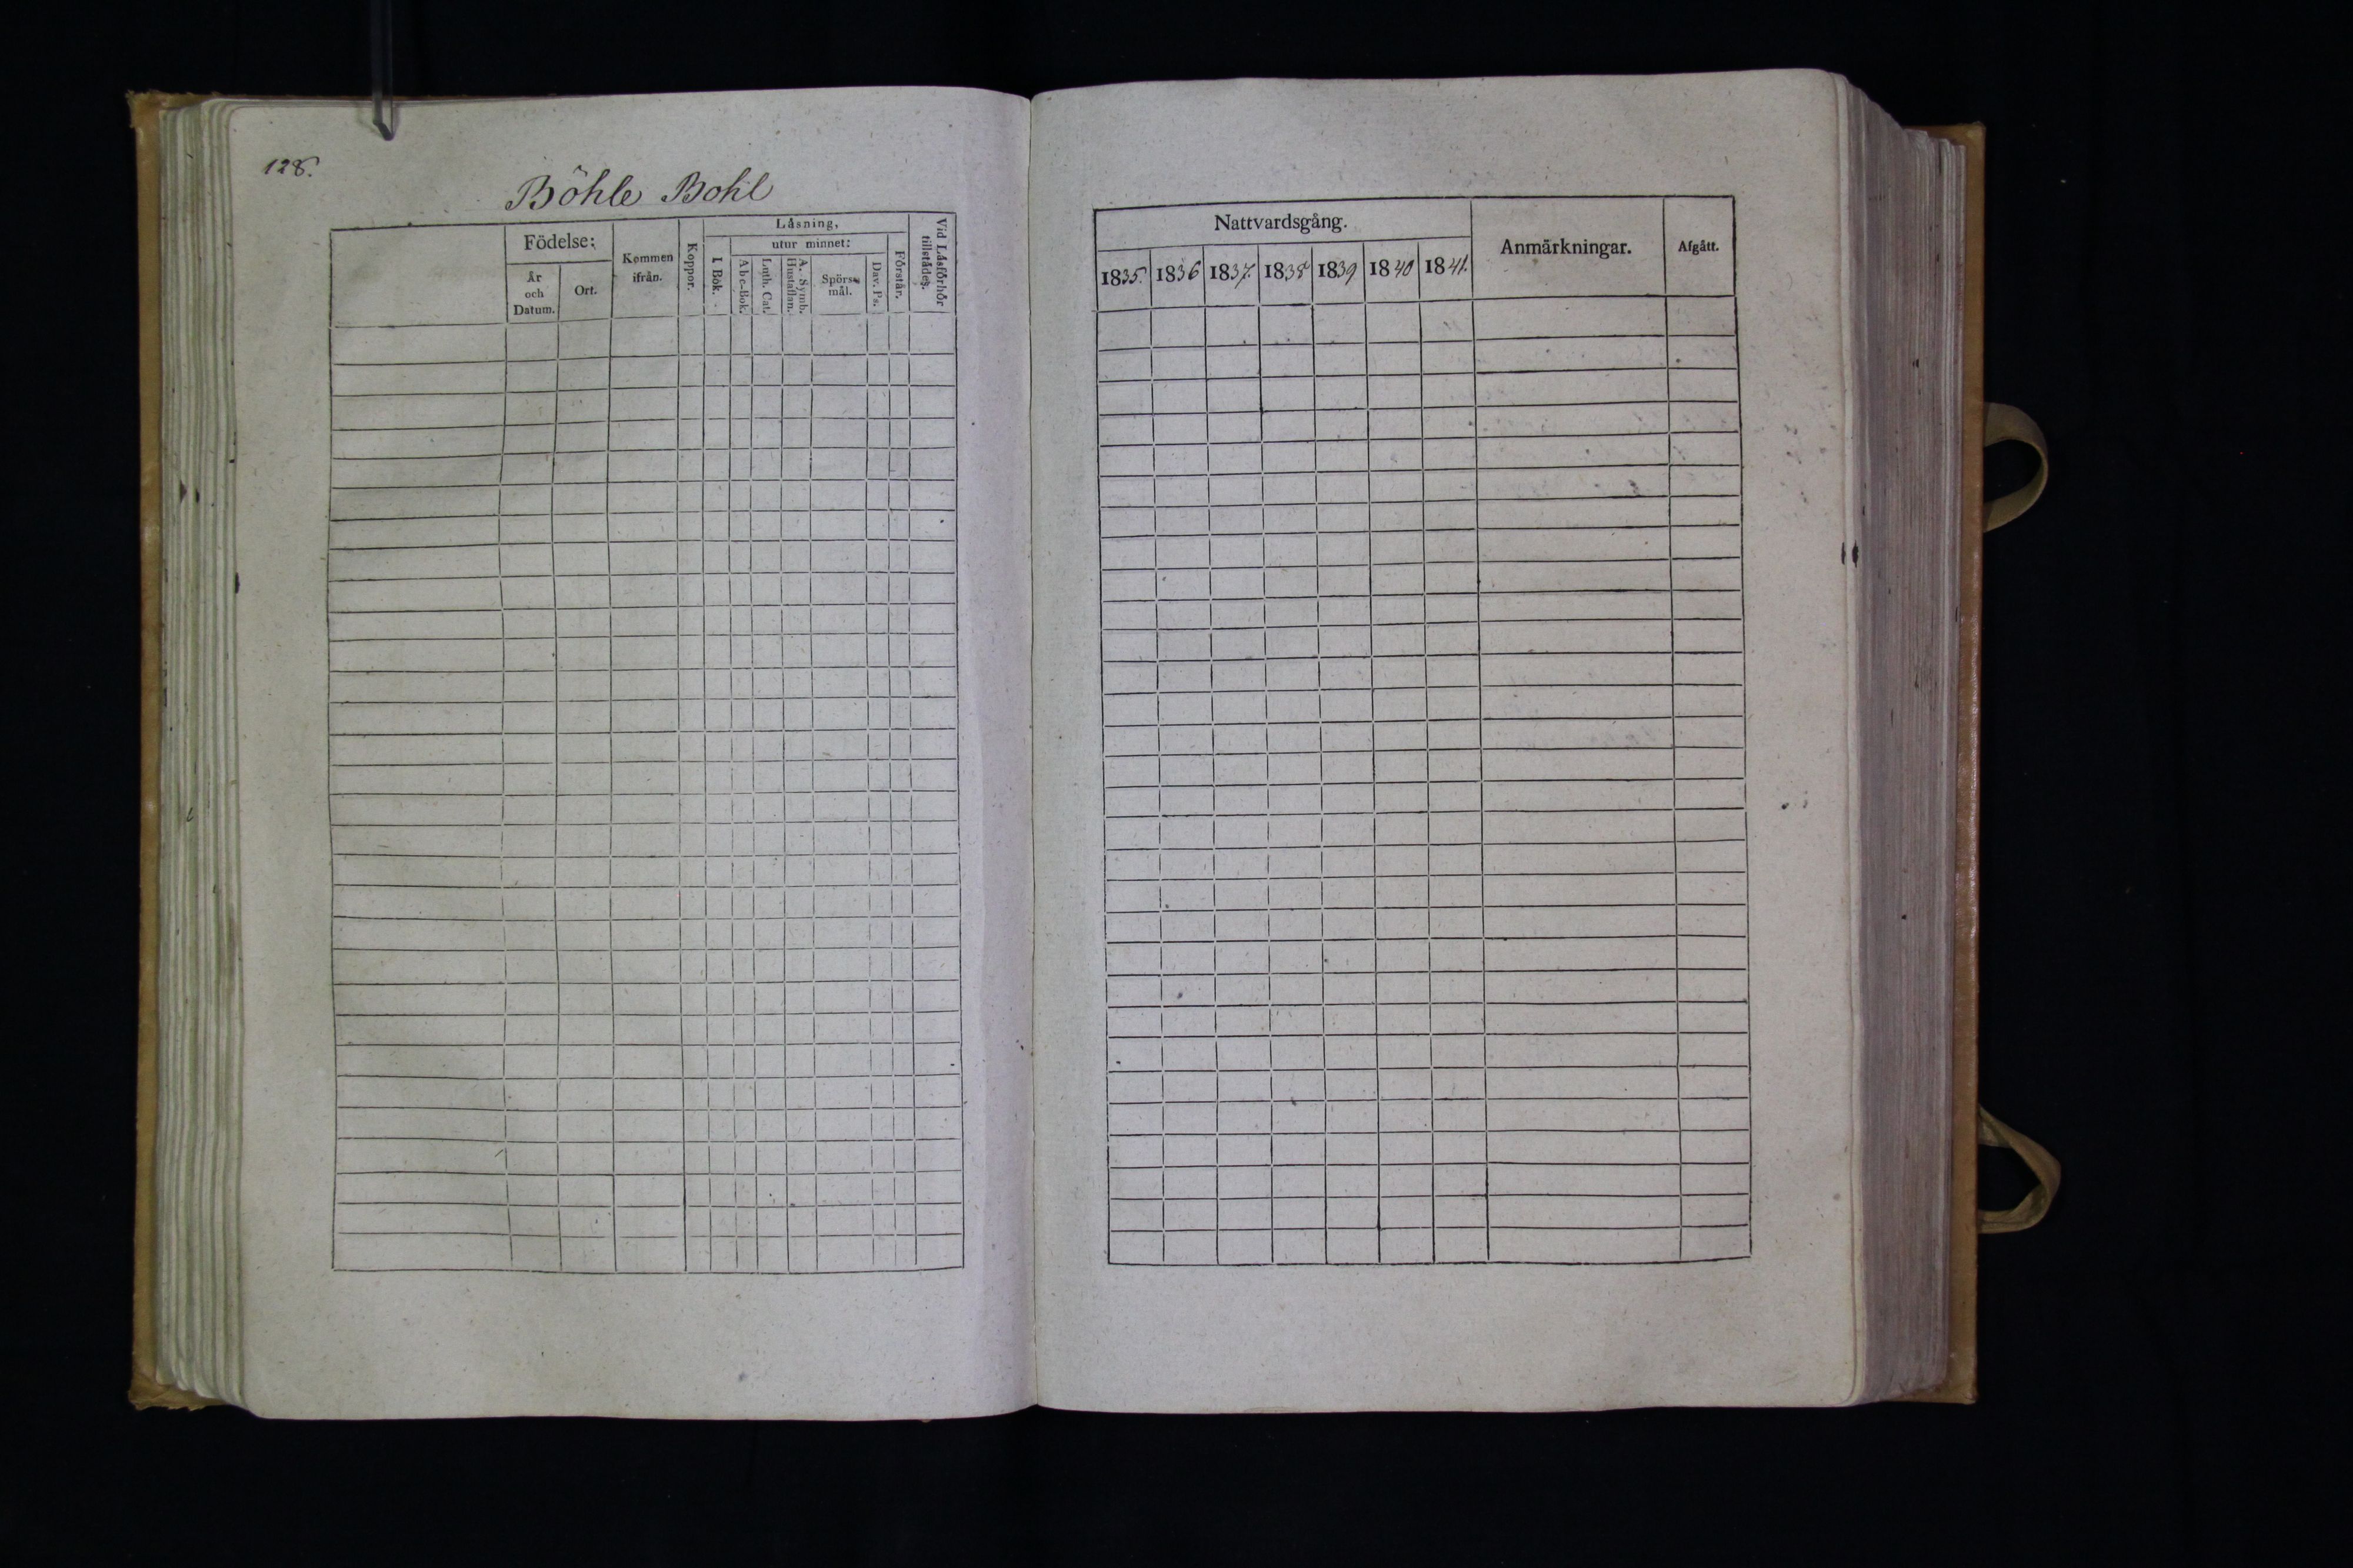 128.
Böhle Bohl
Födelse:
År och Datum.
Ort.
Kommen ifrån.
Koppor.
Läsning,
I Bok.
utur minnet:
Abc-Bok.
Luth. Cat.
A. Symb. Hustaflan.
Spörsmål.
Dav. Ps.
Förstår.
Vid Läsförhör tillstädes.
Nattvardsgång.
1835. 1836 1837. 1838 1839 1840 1841.
Anmärkningar.
Afgått.